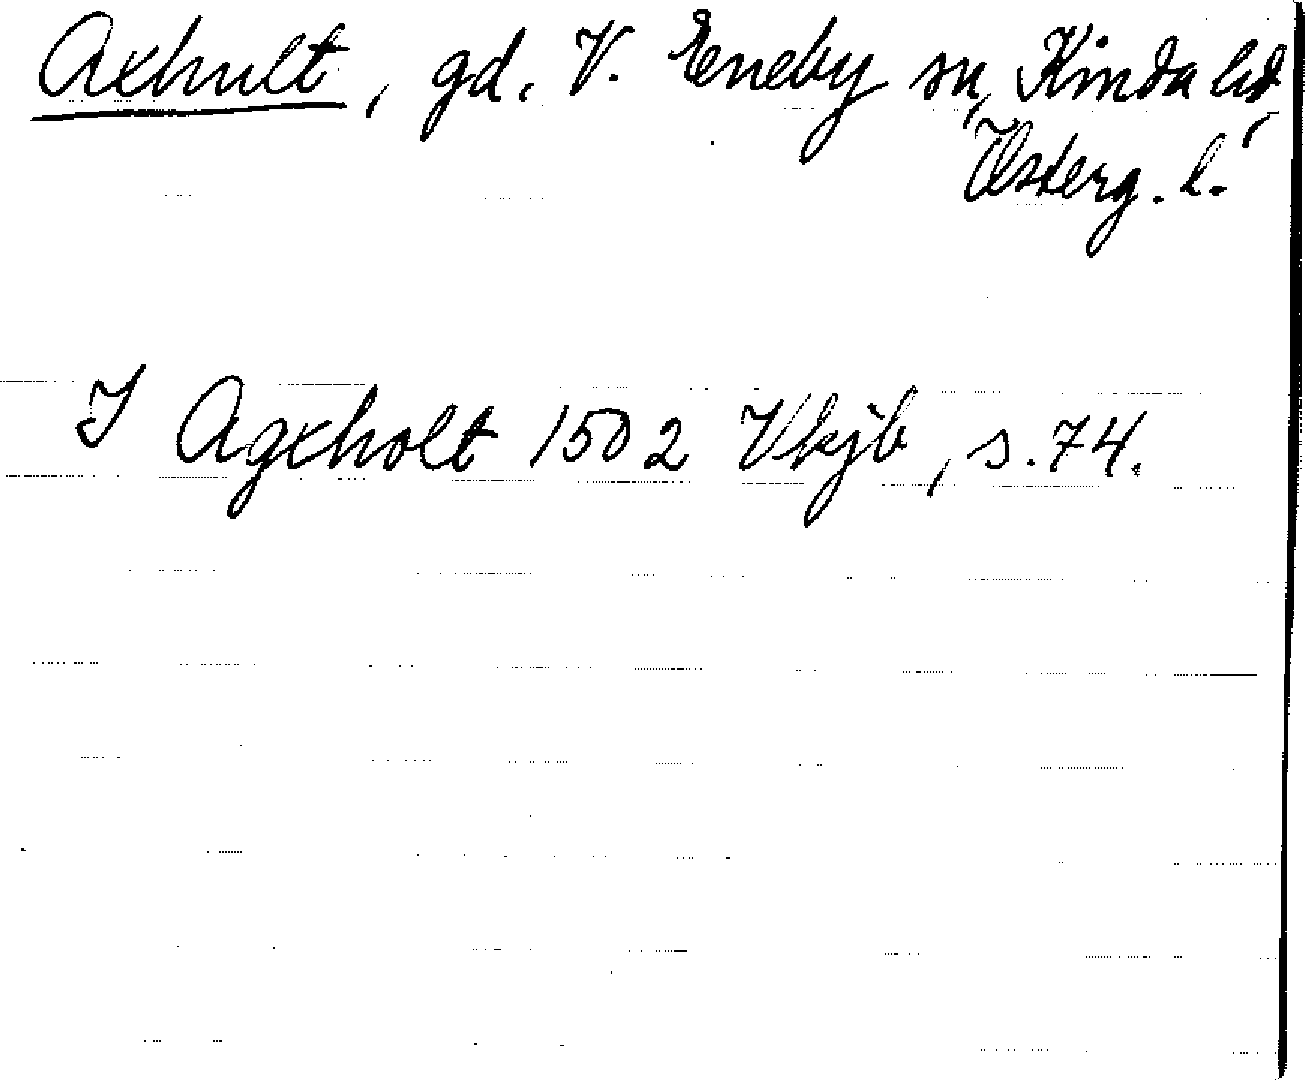 Axhult, gd. V. Eneby sn, Kinda hd,
Österg. l.
I Agxholt 1502 Vkjb, s. 74.